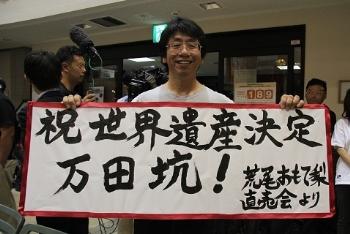 祝世界遺産決定
万田坑！
荒尾おもて梨
直売会より
189